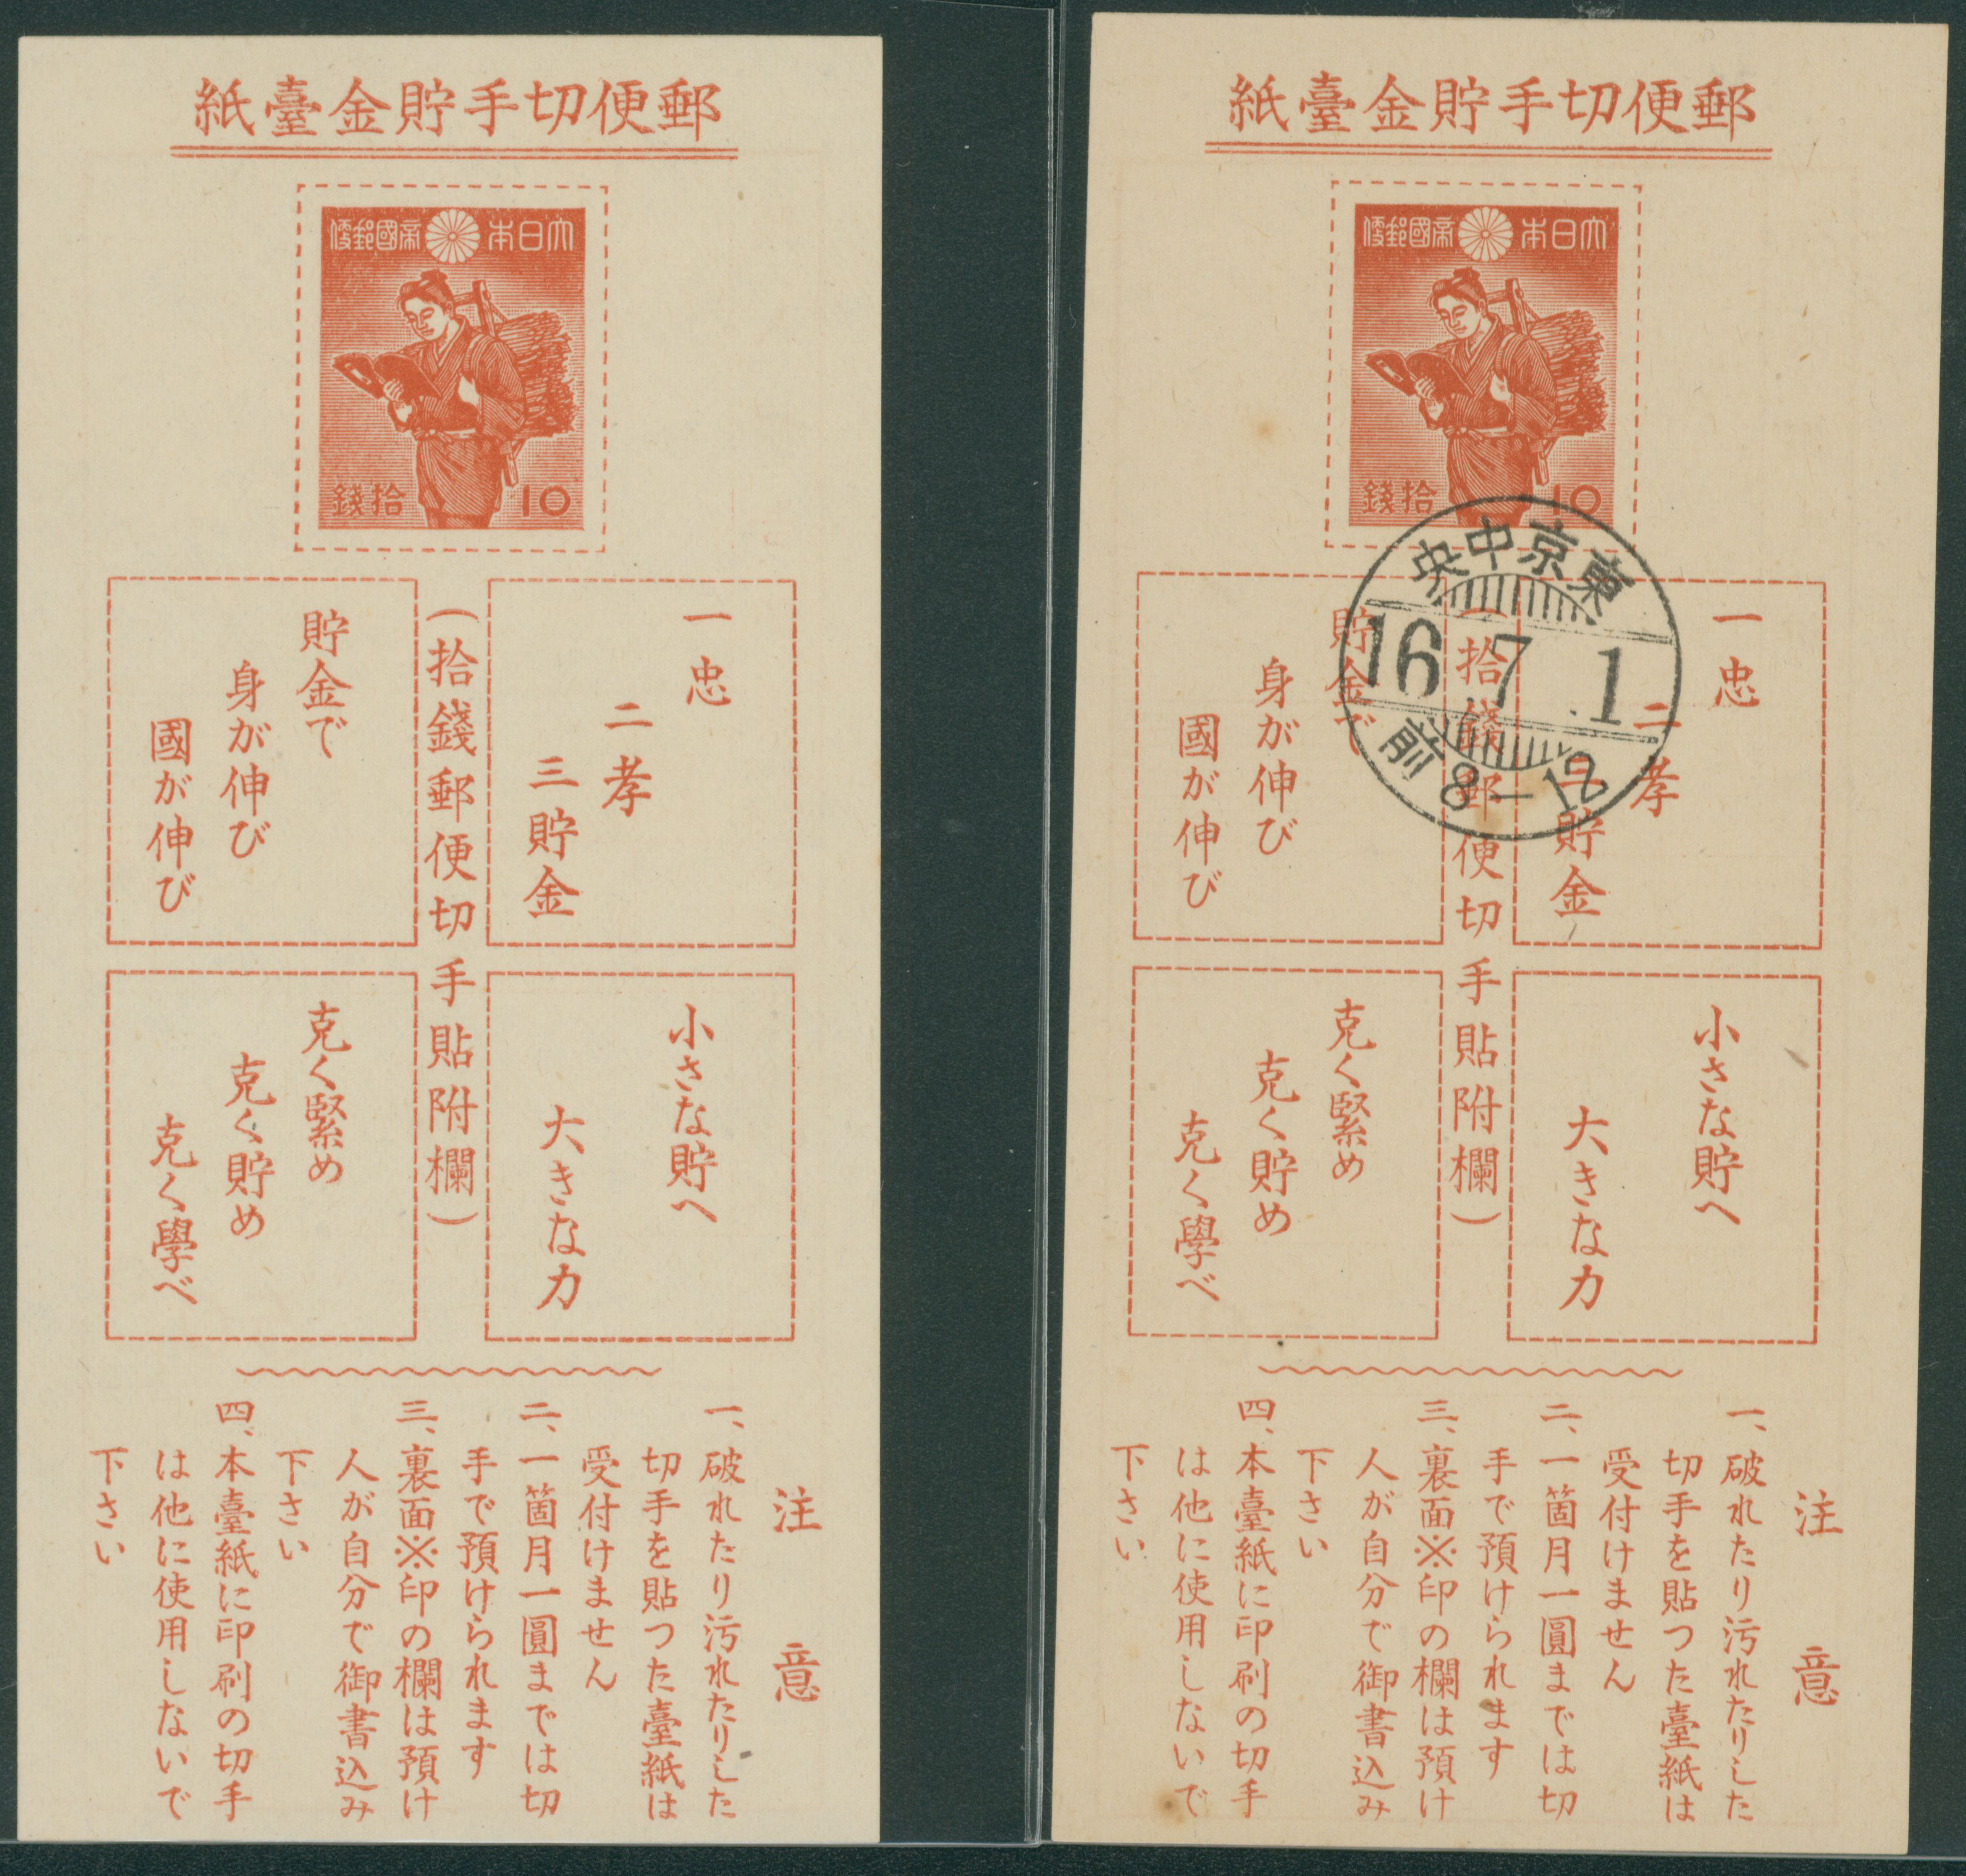 郵便切手貯金臺紙
大日本帝國郵便
拾錢
10
一忠
二孝
三貯金
(拾錢郵便切手貼附欄)
貯金で
身が伸び
國が伸び
小さな貯へ
大きな力
克く緊め
克く貯め
克く學べ
注意
一、破れたり汚れたりした
切手を貼つた臺紙は
受付けません
二、一箇月一圓までは切
手で預けられます
三、裏面※印の欄は預け
人が自分で御書込み
下さい
四、本臺紙に印刷の切手
は他に使用しないで
下さい
郵便切手貯金臺紙
大日本帝國郵便
拾錢
10
東京中央
16.7.1
前8-12
一忠
二孝
三貯金
(拾錢郵便切手貼附欄)
貯金で
身が伸び
國が伸び
小さな貯へ
大きな力
克く緊め
克く貯め
克く學べ
注意
一、破れたり汚れたりした
切手を貼つた臺紙は
受付けません
二、一箇月一圓までは切
手で預けられます
三、裏面※印の欄は預け
人が自分で御書込み
下さい
四、本臺紙に印刷の切手
は他に使用しないで
下さい